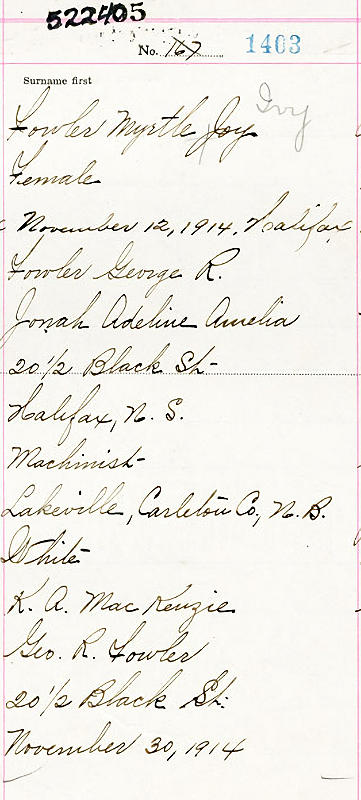 522405
No. 167 1403
Surname first
Ivy
Fowler Myrtle Joy
Female
November 12, 1914, Halifax
Fowler George R.
Jonah Adeline Amelia
20 1/2 Black St
Halifax, N. S.
Machinist
Lakeville, Carleton Co., N. B.
White
K. A. MacKenzie
Geo. R. Fowler
20 1/2 Black St.
November 30, 1914